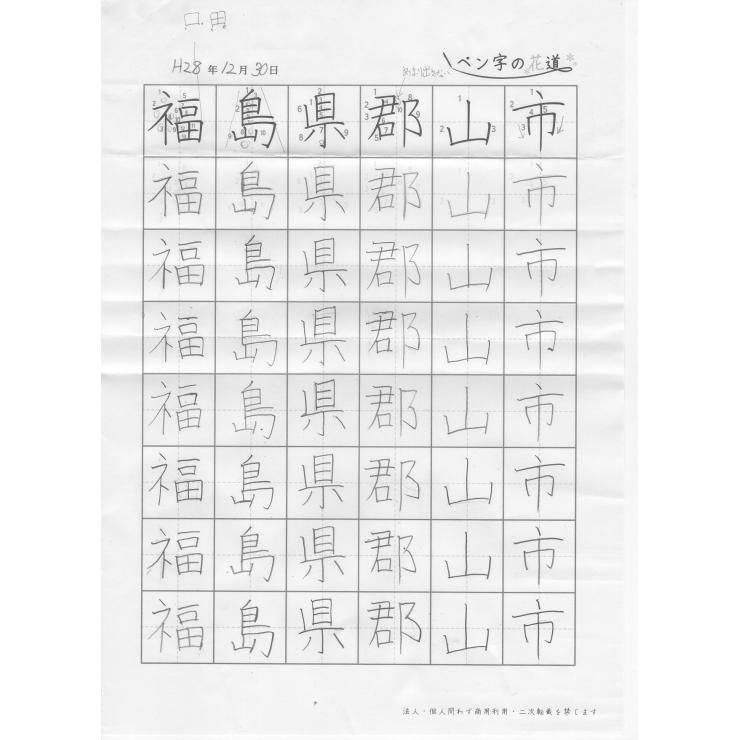 口・田
H28年12月30日
あまり出さない
ペン字の花道
福島県郡山市
福島県郡山市
福島県郡山市
福島県郡山市
福島県郡山市
福島県郡山市
福島県郡山市
福島県郡山市
法人・個人問わず商用利用・二次転載を禁じます